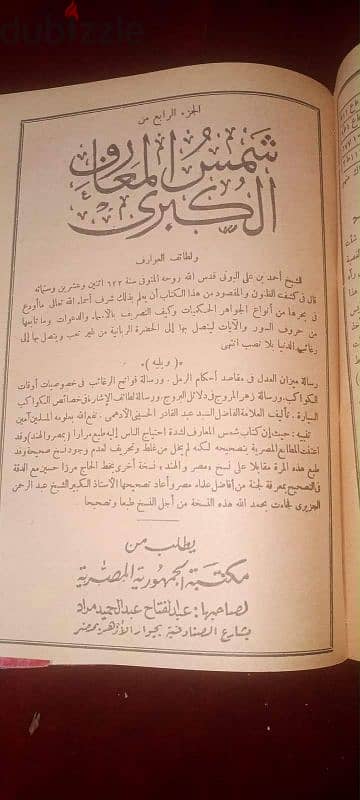 dubizzle
الجزء الرابع من
شمس المعارف
الكبرى
ولطائف العوارف
للشيخ أحمد بن على البونى قدس الله روحه المتوفى سنة ٦٢٢ اثنين وعشرين وستمائة
قال فى كشف الظنون والمقصود من هذا الكتاب أن يعلم بذلك شرف أسماء الله تعالى وما أودع
فى بحرها من أنواع الجواهر الحكميات وكيف التصريف بالأسماء والدعوات وما تابعها
من حروف السور والآيات ليتصل بها إلى الحضرة الربانية من غير تعب ويتصل بها إلى
رغائب الدنيا بلا نصب انتهى
﴿ ويليه ﴾
رسالة ميزان العدل فى مقاصد أحكام الرمل . ورسالة فواتح الرغائب فى خصوصيات أوقات
الكواكب . ورسالة زهر المروج فى دلائل البروج . ورسالة لطائف الإشارة فى خصائص الكواكب
السيارة . تأليف العلامة الفاضل السيد عبد القادر الحسينى الأدهمى . نفع الله بعلومه المسلمين آمين
تنبيه : حيث إن كتاب شمس المعارف لشدة احتياج الناس إليه طبع مرارا ( بمصر والهند ) وقد
اعتنت المطابع المصرية بتصحيحه لكنه لم يخل من غلط وتحريف لعدم وجود نسخ صحيحة وقد
طبع هذه المرة مقابلا على نسخ ومصر والهند ، نسخة أخرى بخط الحاج مرزا حسين مع الدقة
فى التصحيح بمعرفة لجنة من أفاضل علماء مصر وأعاد تصحيحها الأستاذ الكبير الشيخ عبد الرحمن
الجزيرى لجاءت بحمد الله هذه النسخة من أجل النسخ طبعا وتصحيحا .
يطلب من
مكتبة الجمهورية المصرية
لصاحبها : عبد الفتاح عبد الحميد مراد
بشارع الصنادقية بجوار الأزهر بمصر